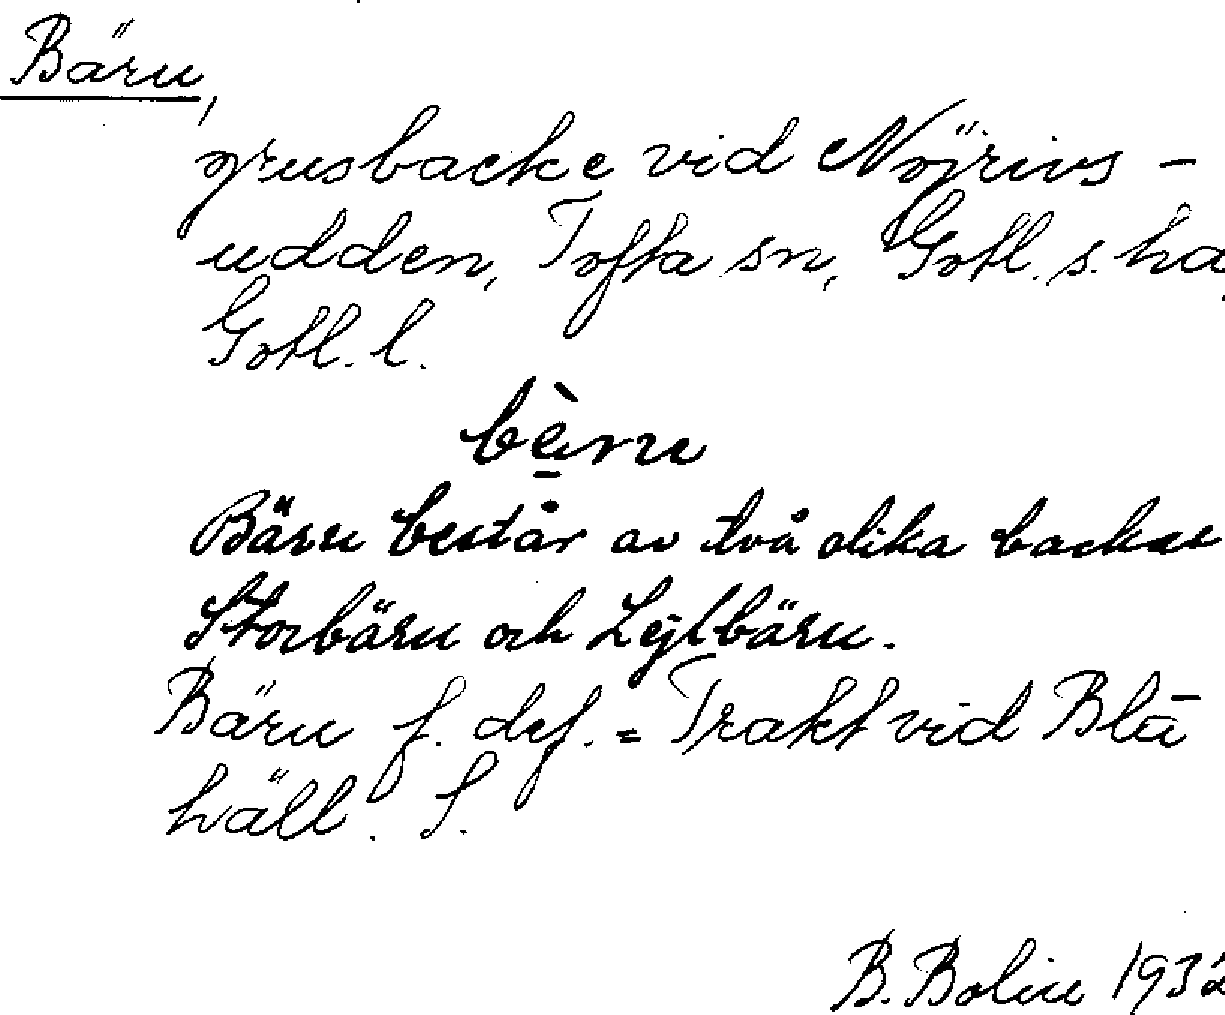 Bäru,
grusbacke vid Nöjrivs-
udden, Tofta sn, Gotl. s. hd,
Gotl. l.
bèru
Bäru består av två olika backar
Storbäru och Lejlbäru.
Bäru f. def. = Trakt vid Blå
häll. S.
B. Bolin 1932